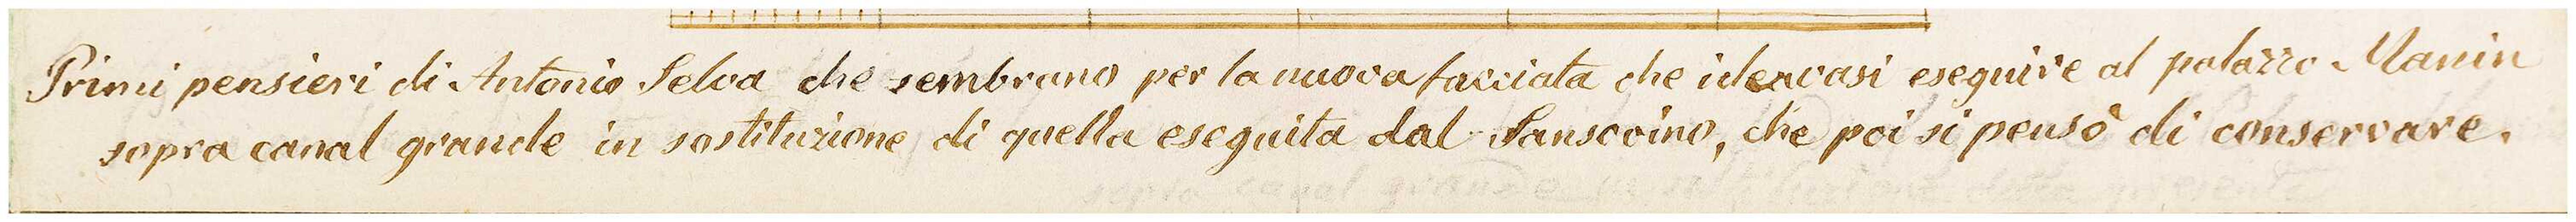 Primi pensieri di Antonio Selva che sembrano per la nuova facciata che ideavasi eseguire al palazzo Manin
sopra canal grande in sostituzione di quella eseguita dal Sansovino, che poi si pensò di conservare.